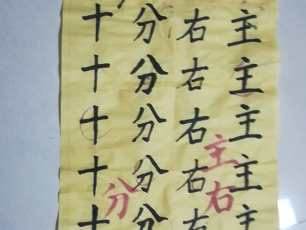 十分右主
十分右主
十分右主
十分右主
主
分右
十分右主